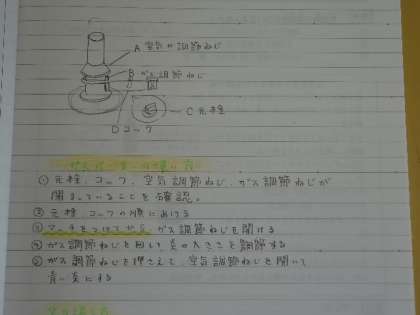 A 空気調節ねじ
B ガス調節ねじ
C 元栓
D コック
ガスバーナーの使い方
① 元栓、コック、空気調節ねじ、ガス調節ねじが
閉まっていることを確認。
② 元栓、コックの順にあける
③ マッチをつけてから、ガス調節ねじを開ける
④ ガス調節ねじを回して炎の大きさを調節する
⑤ ガス調節ねじを押さえて、空気調節ねじを開いて
青い炎にする